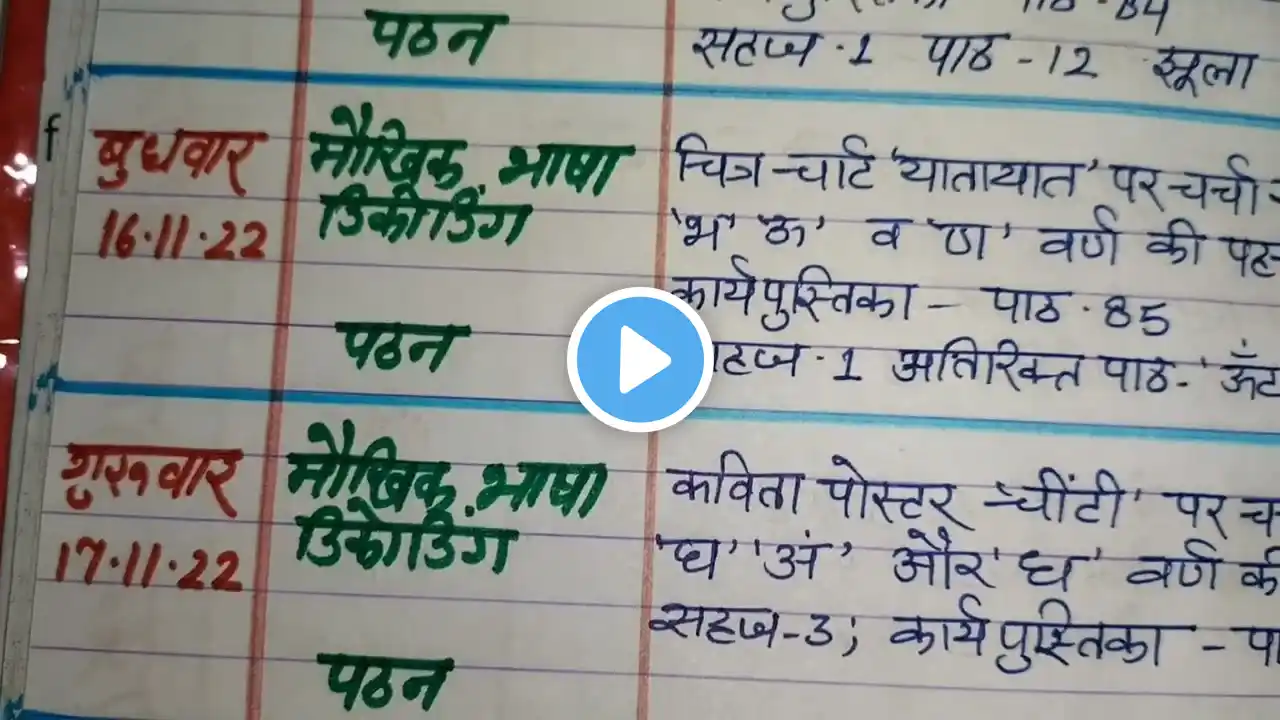 पाठ - 84
पठन सहज - 1 पाठ - 12 झूला
बुधवार मौखिक भाषा चित्र-चार्ट 'यातायात' पर चर्चा -
16.11.22 डिकोडिंग 'भ' 'ऊ' व 'ण' वर्ण की
कार्यपुस्तिका - पाठ - 85
पठन - 1 अतिरिक्त पाठ -
गुरुवार मौखिक भाषा कविता पोस्टर - 'चींटी' पर
17.11.22 डिकोडिंग 'घ' 'अं' और 'ध' वर्ण की
सहज - 3; कार्यपुस्तिका -
पठन